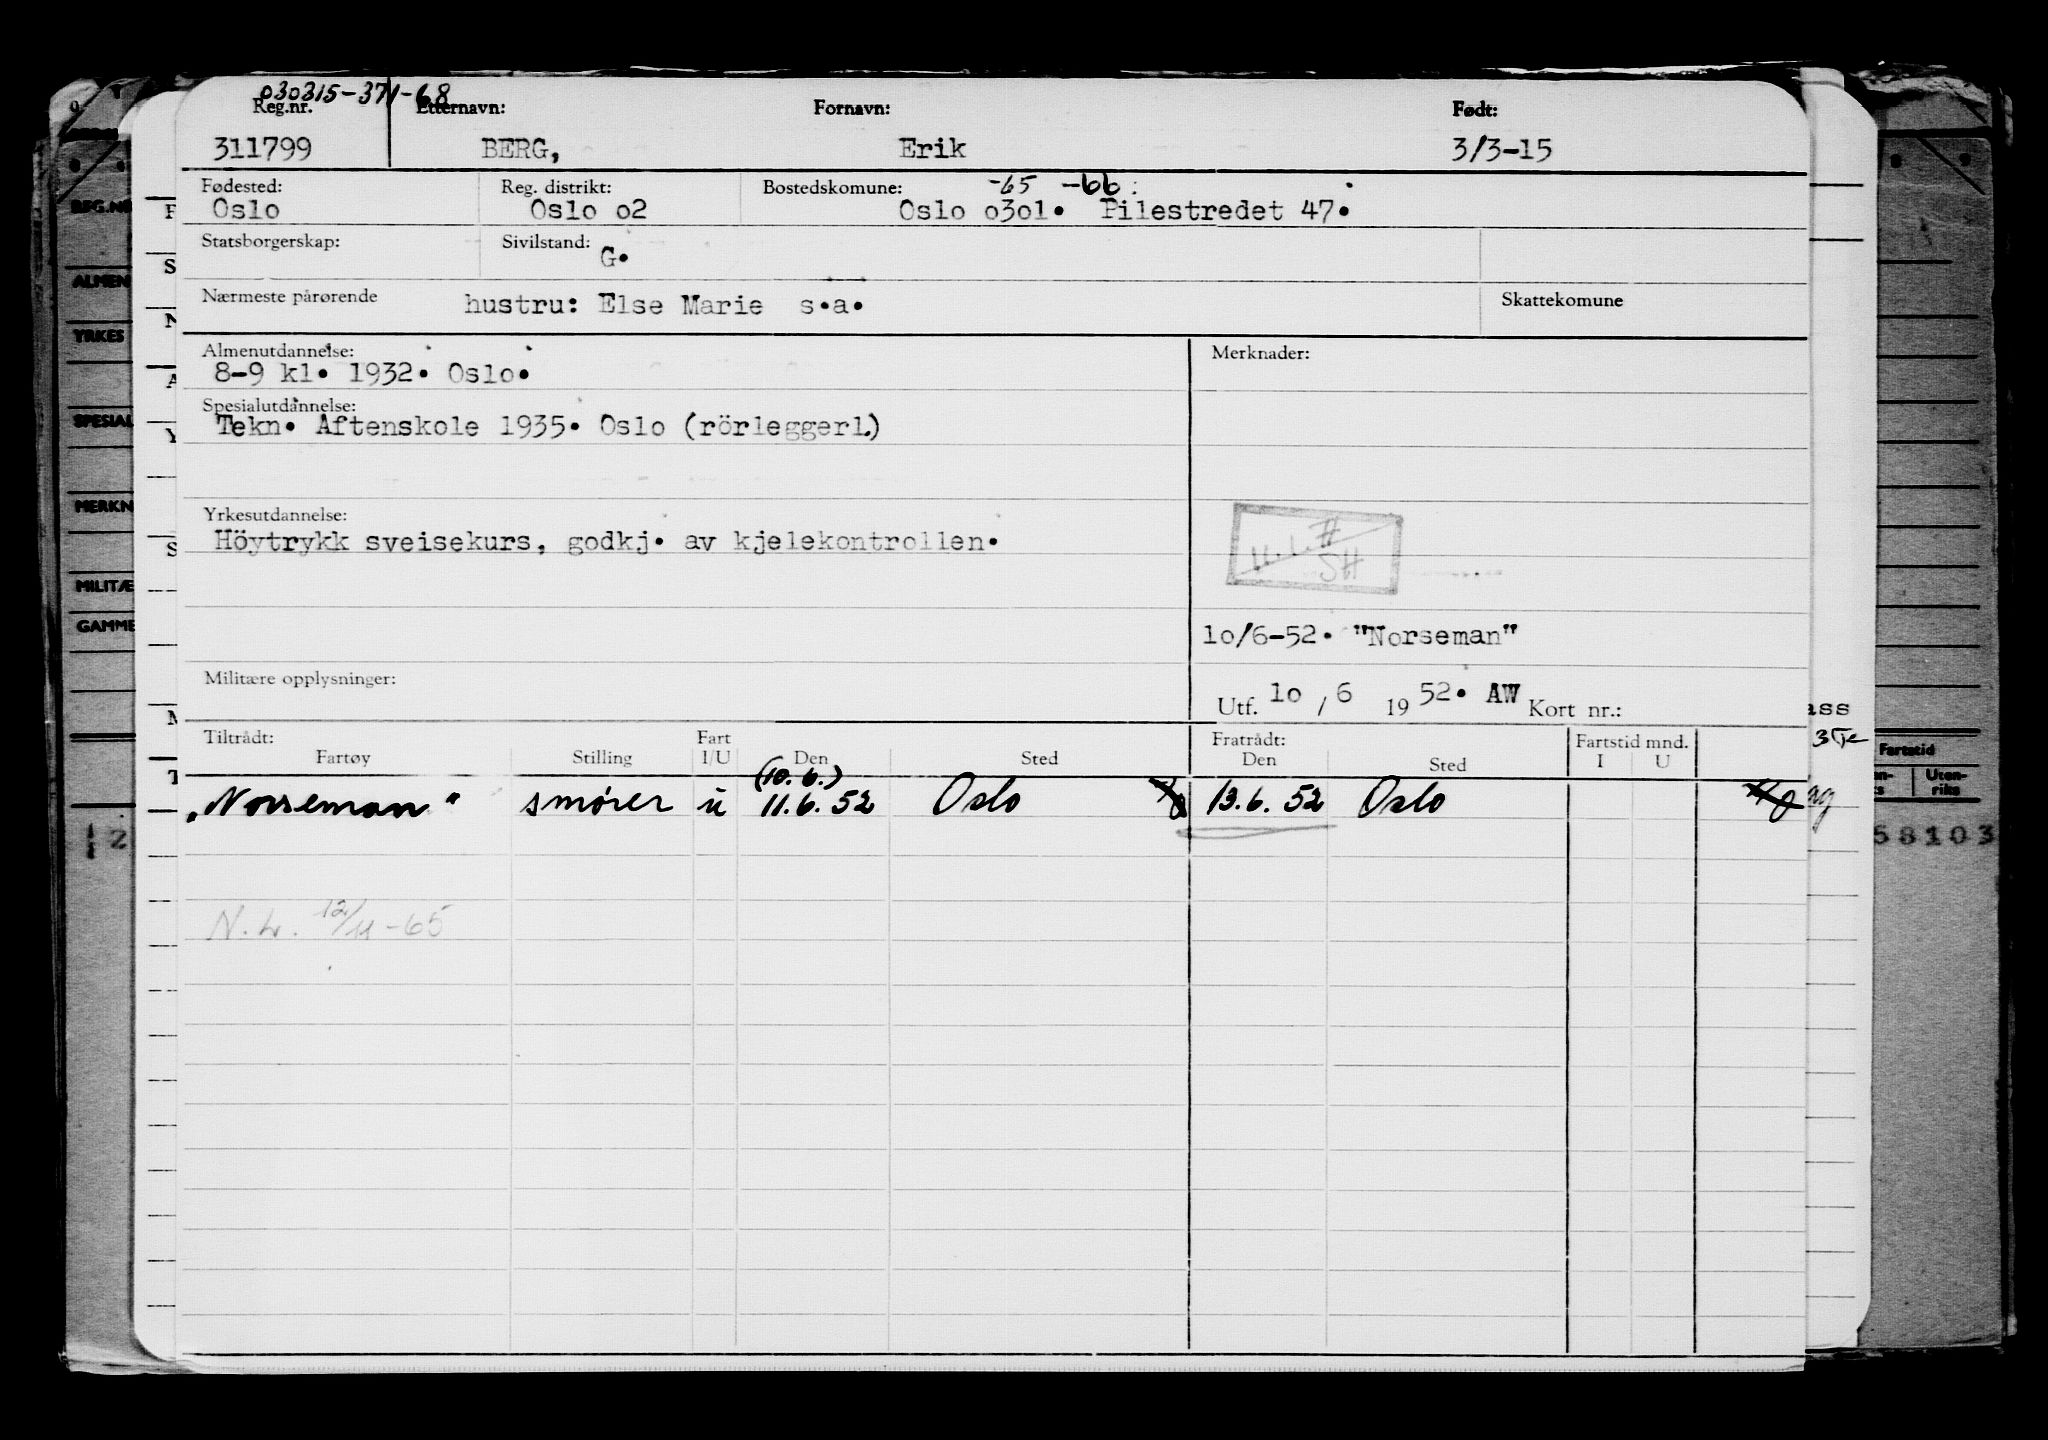 030315-371-68
Reg.nr. Etternavn: Fornavn: Født:
311799 BERG, Erik 3/3-15
Fødested: Reg. distrikt: Bostedskomune: -65 -66
Oslo Oslo o2 Oslo o3o1. Pilestredet 47.
Statsborgerskap: Sivilstand:
G.
Nærmeste pårørende hustru: Else Marie s.a. Skattekomune
Almenutdannelse: Merknader:
8-9 kl. 1932. Oslo.
Spesialutdannelse:
Tekn. Aftenskole 1935. Oslo (rörleggerl.)
Yrkesutdannelse:
Höytrykk sveisekurs, godkj. av kjelekontrollen.
SH
1o/6-52. "Norseman"
Militære opplysninger:
Utf. 1o / 6 19 52. AW Kort nr.:
Tiltrådt: Fart Fratrådt: Fartstid mnd.
Fartøy Stilling I/U Den Sted Den Sted I U
(10. 6.)
"Norseman" smører u 11.6.52 Oslo 13.6.52 Oslo
N.L. 12/11-65
REG.NR
ALMEN
YRKES
SPESIAL
MERKN
MILITÆ
GAMME
12
ass
Fartstid
Uten-
riks
58103